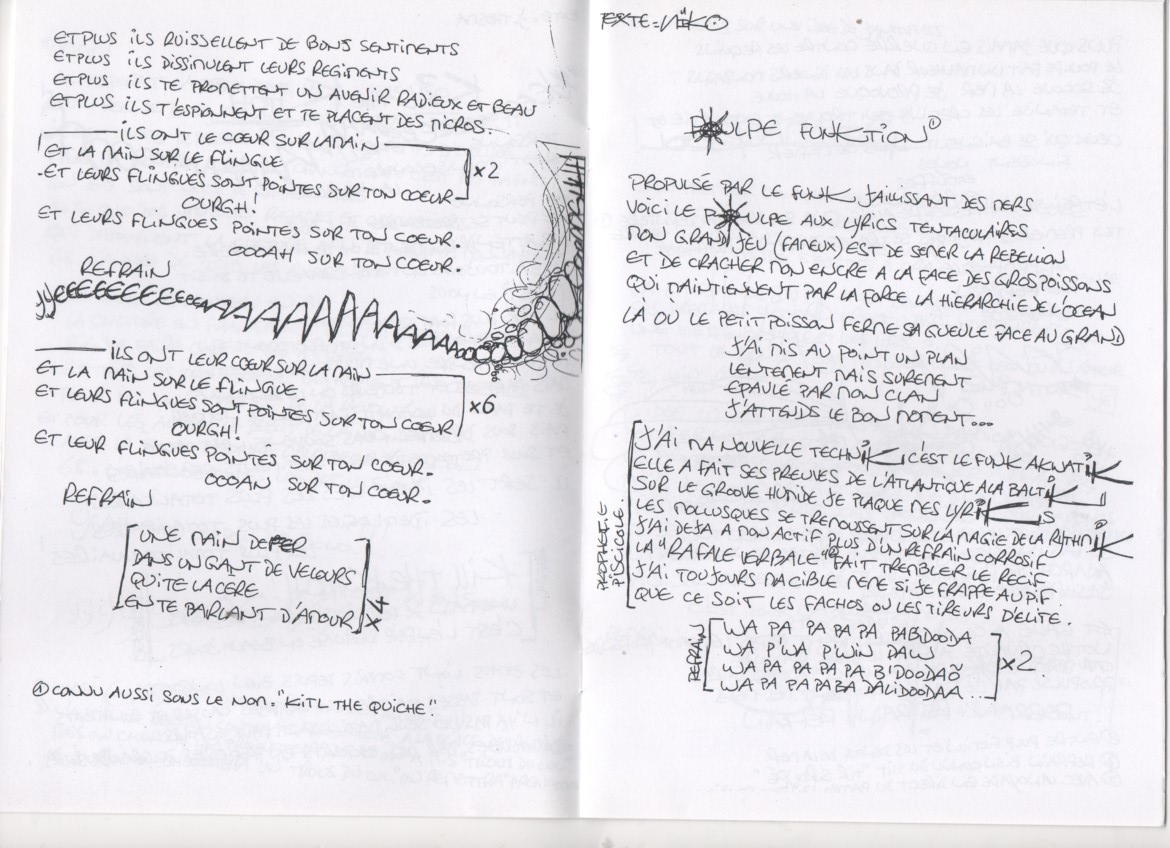 ET PLUS ILS RUISSELLENT DE BONS SENTIMENTS
ET PLUS ILS DISSIMULENT LEURS REGIMENTS
ET PLUS ILS TE PROMETTENT UN AVENIR RADIEUX ET BEAU
ET PLUS ILS T'ESPIONNENT ET TE PLACENT DES MICROS.
ILS ONT LE CŒUR SUR LA MAIN
ET LA MAIN SUR LE FLINGUE
ET LEURS FLINGUES SONT POINTES SUR TON COEUR
x2
OURGH!
ET LEURS FLINGUES POINTES SUR TON COEUR.
OOOAH SUR TON COEUR.
REFRAIN
ILS ONT LEUR CŒUR SUR LA MAIN
ET LA MAIN SUR LE FLINGUE
ET LEURS FLINGUES SONT POINTÉS SUR TON COEUR
x6
OURGH!
ET LEUR FLINGUES POINTES SUR TON COEUR.
OOOAH SUR TON COEUR.
REFRAIN
UNE MAIN DE FER
DANS UN GANT DE VELOURS
QUI TE LACERE
EN TE PARLANT D'AMOUR
x4
① CONNU AUSSI SOUS LE NOM: "KITL THE QUICHE"
TEXTE = NIIKO
POULPE FUNKTION
PROPULSÉ PAR LE FUNK JAILLISSANT DES MERS
VOICI LE POULPE AUX LYRICS TENTACULAIRES
MON GRAND JEU (FAMEUX) EST DE SEMER LA REBELION
ET DE CRACHER MON ENCRE A LA FACE DES GROS POISSONS
QUI MAINTIENNENT PAR LA FORCE LA HIERARCHIE DE L'OCEAN
LÀ OÙ LE PETIT POISSON FERME SA GUEULE FACE AU GRAND
J'AI MIS AU POINT UN PLAN
LENTEMENT MAIS SUREMENT
EPAULÉ PAR MON CLAN
J'ATTENDS LE BON MOMENT...
PROPHETIE PISCICOLE.
J'AI MA NOUVELLE TECHNIK, C'EST LE FUNK AKWATIK
ELLE A FAIT SES PREUVES DE L'ATLANTIQUE A LA BALTIK
SUR LE GROOVE HUMIDE JE PLAQUE MES LYRIKS
LES MOLLUSQUES SE TREMOUSSENT SUR LA MAGIE DE LA RYTHMIK
J'AI DEJA A MON ACTIF PLUS D'UN REFRAIN CORROSIF
LA "RAFALE VERBALE" FAIT TREMBLER LE RECIF
J'AI TOUJOURS MA CIBLE MEME SI JE FRAPPE AU PIF
QUE CE SOIT LES FACHOS OU LES TIREURS D'ELITE.
REFRAIN
WA PA PA PA PA PABDOODA
WA P'WA P'WIN DAW
WA PA PA PA PA BIDOODAÕ
WA PA PA PABA DALIDOODAA.
x2